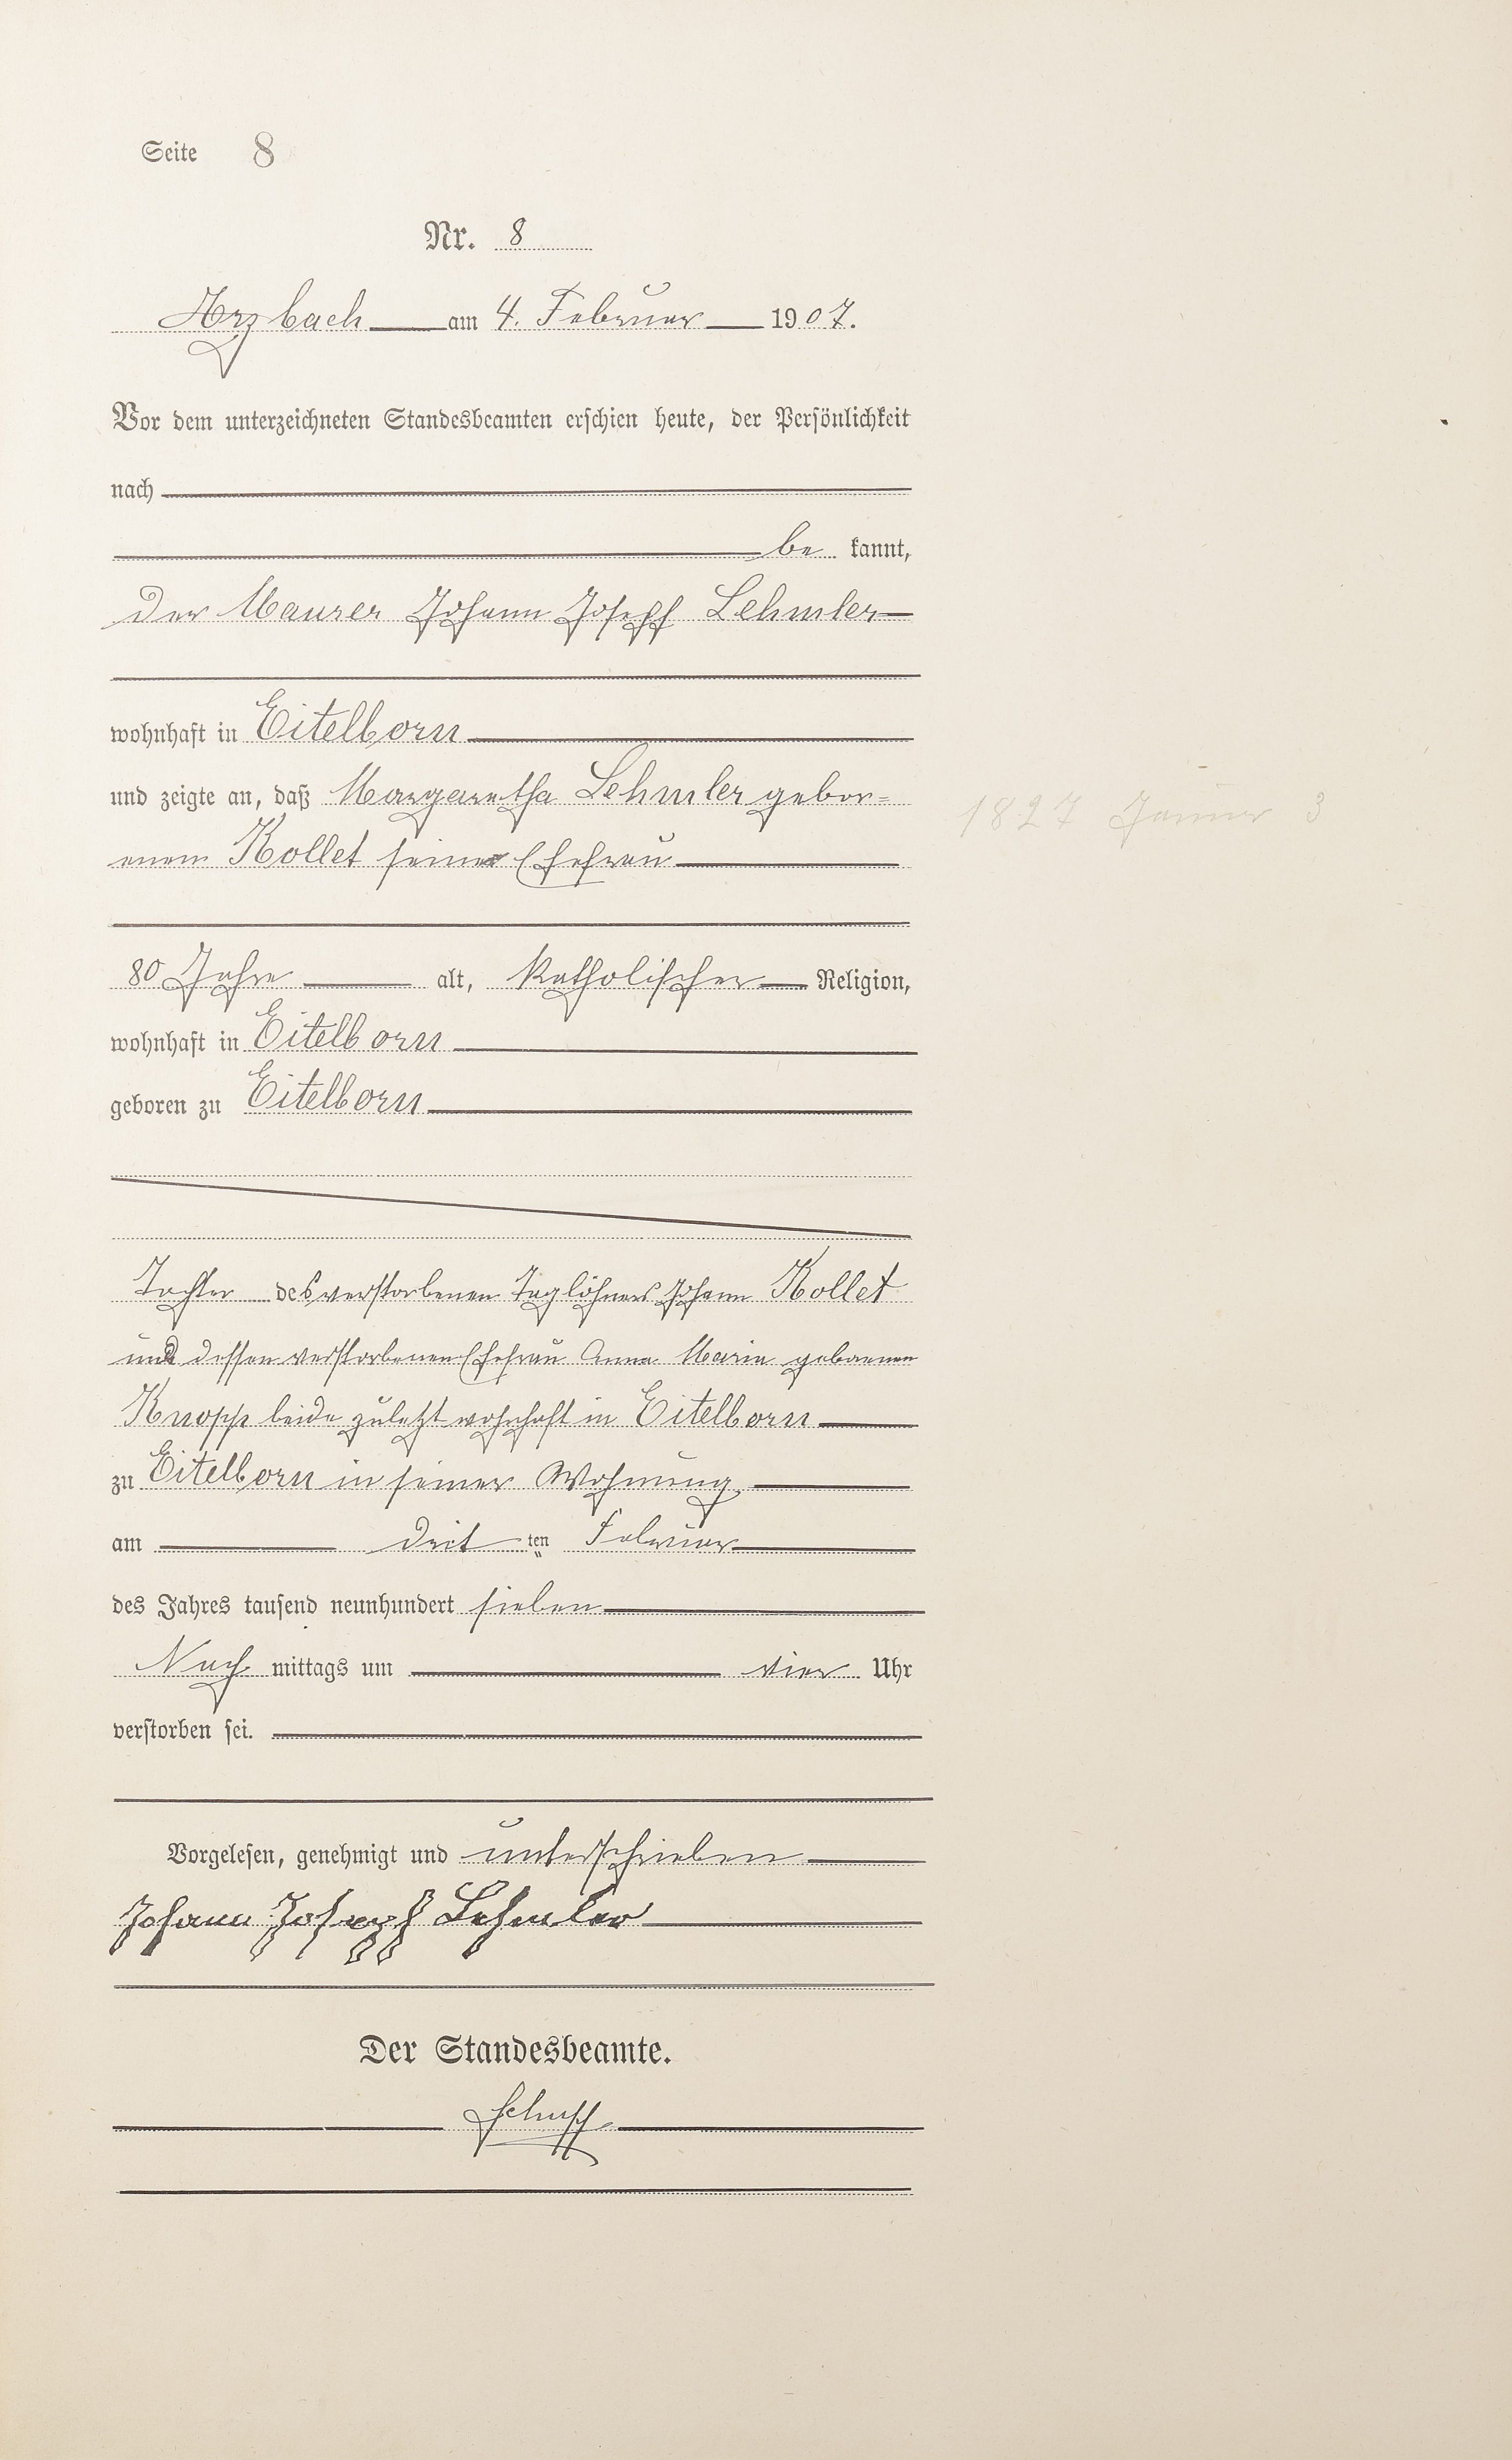 Seite 8
Nr. 8
Arzbach am 4. Februar 1907.
Vor dem unterzeichneten Standesbeamten erschien heute, der Persönlichkeit
nach
be kannt,
der Maurer Johann Joseph Lehmler
wohnhaft in Eitelborn
und zeigte an, daß Margaretha Lehmler gebor=
1827 Januar 3
enen Kollet seiner Ehefrau
80 Jahre alt, katholischer Religion,
wohnhaft in Eitelborn
geboren zu Eitelborn
Tochter des verstorbenen Taglöhners Johann Kollet
und dessen verstorbenen Ehefrau Anna Maria geborenen
Knopp beide zuletzt wohnhaft in Eitelborn
zu Eitelborn in seiner Wohnung
am drit ten Februar
des Jahres tausend neunhundert sieben
Nach mittags um vier Uhr
verstorben sei.
Vorgelesen, genehmigt und unterschrieben
Johann Joseph Lehmler
Der Standesbeamte.